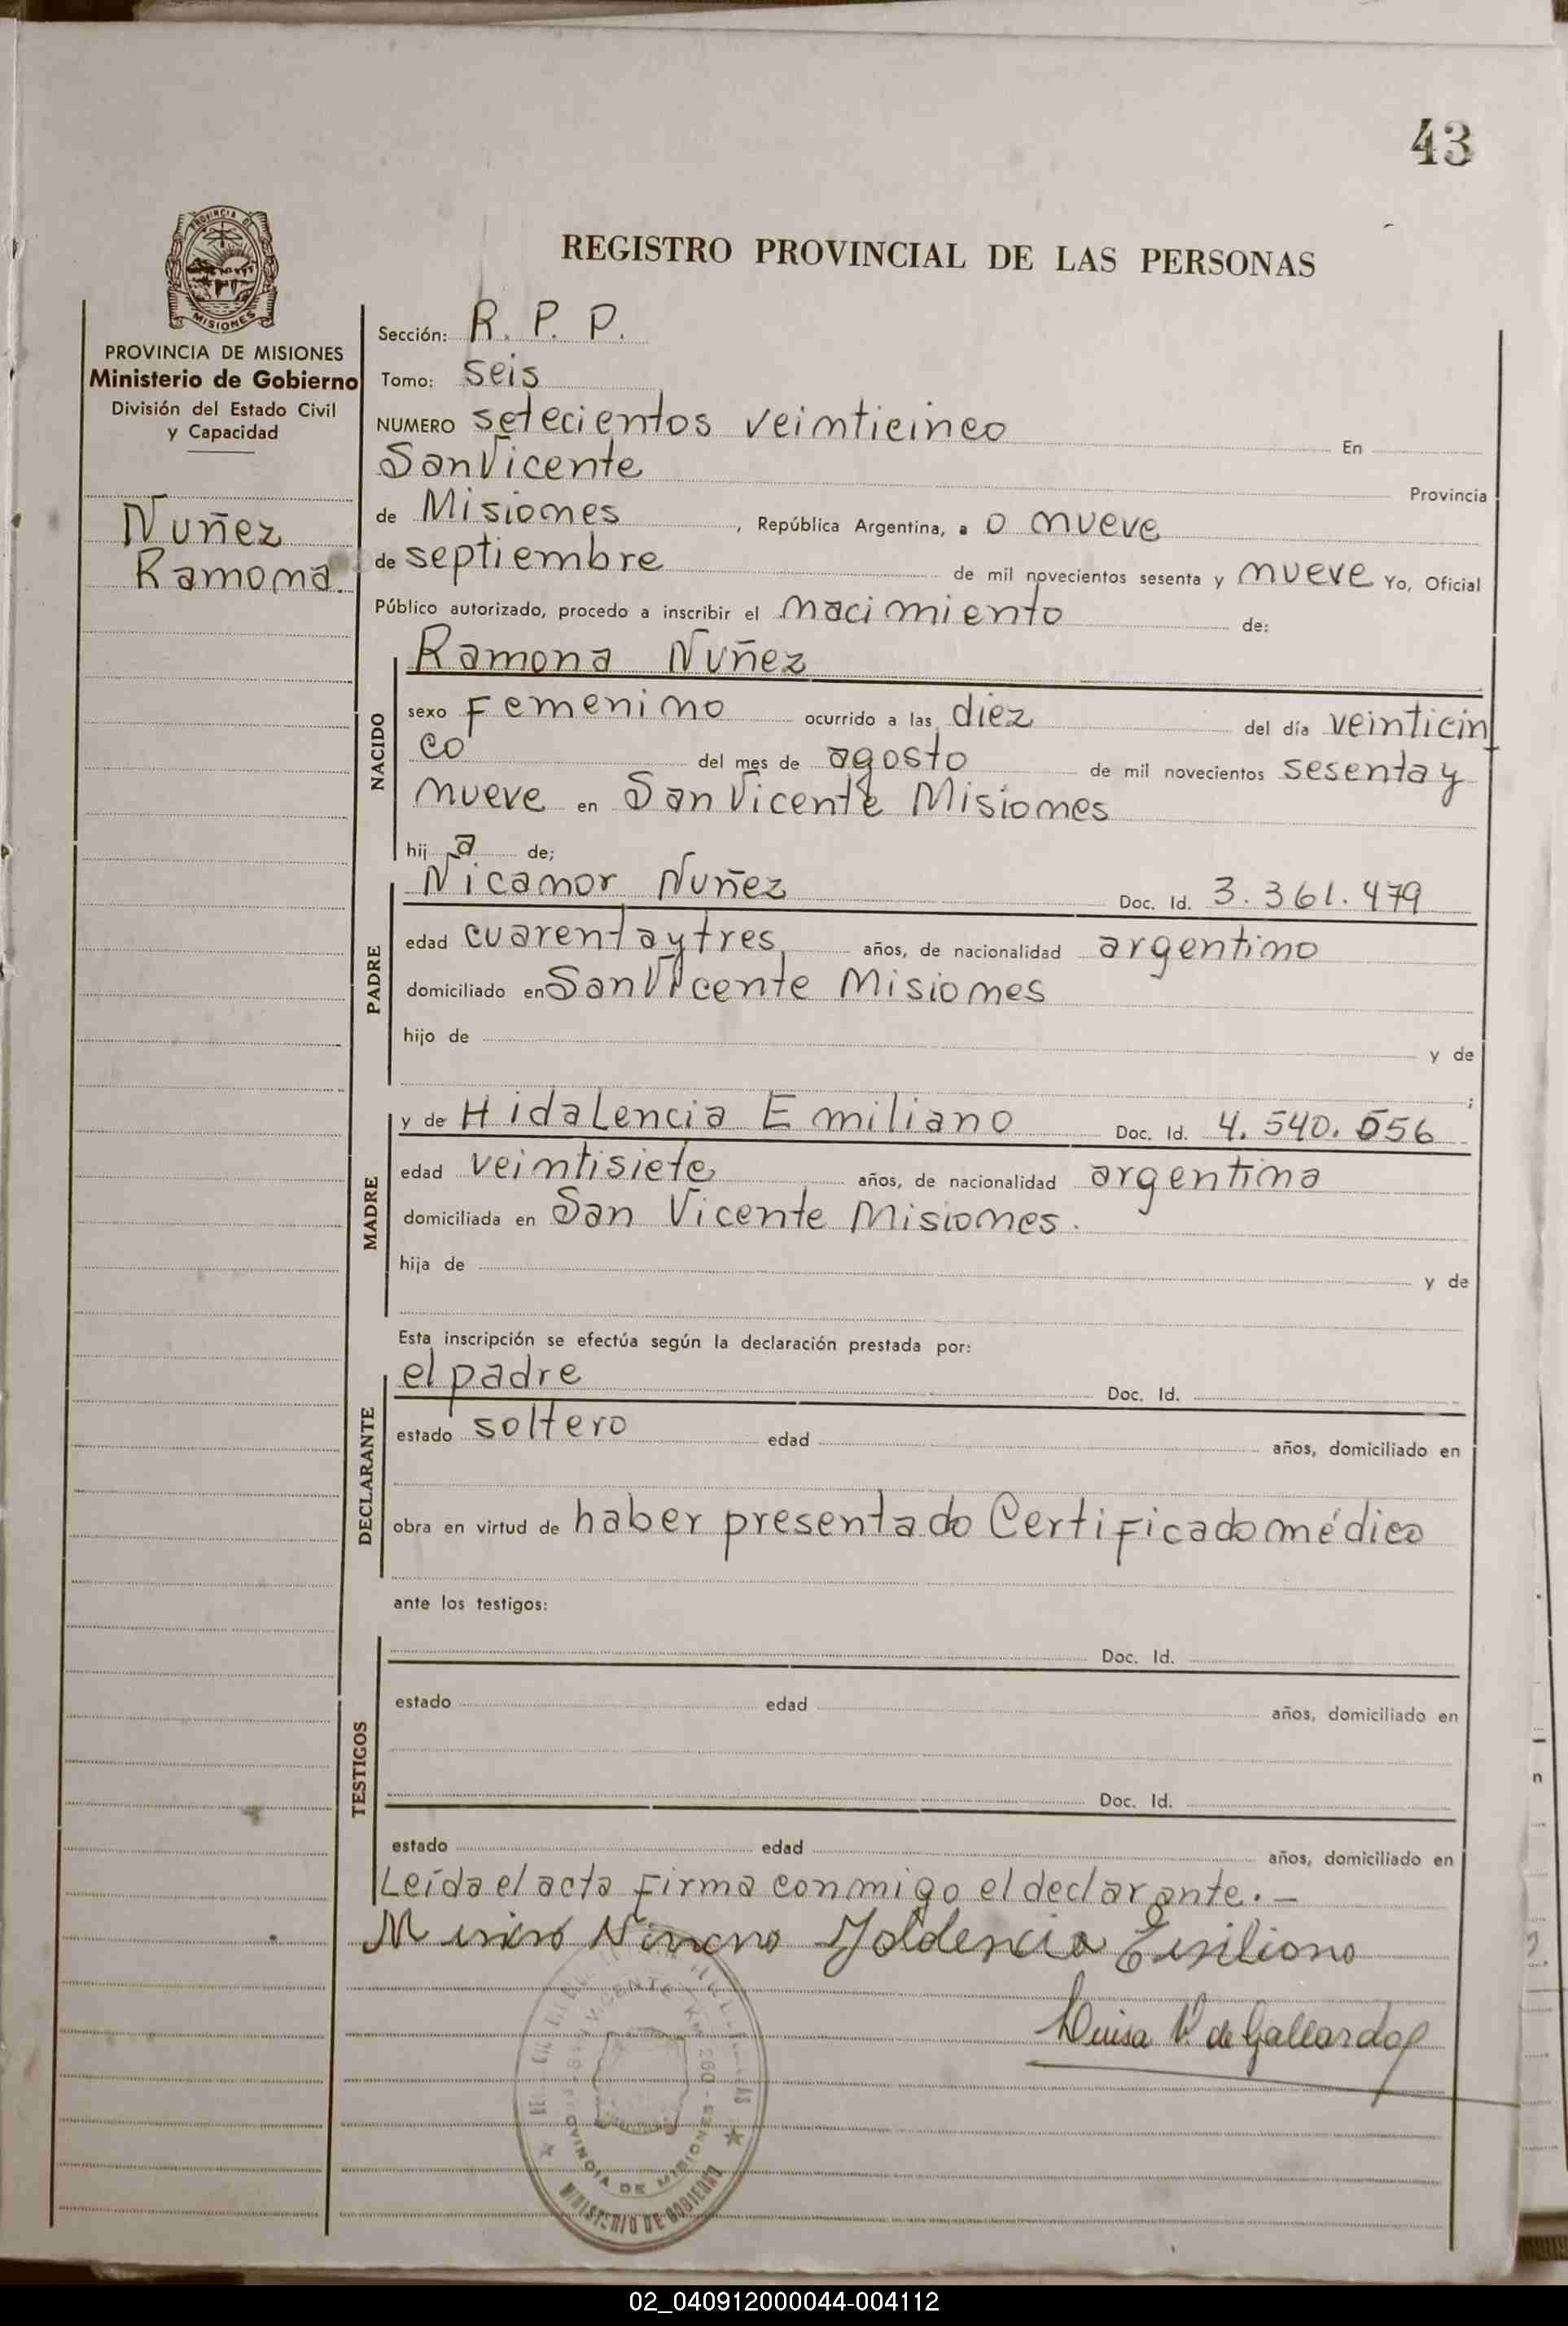 43
REGISTRO PROVINCIAL DE LAS PERSONAS
PROVINCIA DE MISIONES
Ministerio de Gobierno
División del Estado Civil
y Capacidad
Nuñez
Ramona.
Sección: R. P. P.
Tomo: seis
NUMERO setecientos veinticinco En
San Vicente Provincia
de Misiones, República Argentina, a 0 nueve
de septiembre de mil novecientos sesenta y nueve Yo, Oficial
Público autorizado, procedo a inscribir el nacimiento de:
NACIDO
Ramona Nuñez
sexo Femenino ocurrido a las diez del día veinticin
co del mes de agosto de mil novecientos sesenta y
nueve en San Vicente Misiones
hij a de;
PADRE
Nicanor Nuñez Doc. Id. 3.361.479
edad cuarenta y tres años, de nacionalidad argentino
domiciliado en San Vicente Misiones
hijo de y de
;
MADRE
y de Hidalencia Emiliano Doc. Id. 4.540.556
edad veintisiete años, de nacionalidad argentina
domiciliada en San Vicente Misiones.
hija de y de
Esta inscripción se efectúa según la declaración prestada por:
DECLARANTE
el padre Doc. Id.
estado soltero edad años, domiciliado en
obra en virtud de haber presentado Certificado médico
ante los testigos:
TESTIGOS
Doc. Id.
estado edad años, domiciliado en
Doc. Id.
estado edad años, domiciliado en
Leída el acta firma conmigo el declarante.—
Emiliano
Luisa V. de Gallardo
VICENTE Km 260 - MISIONES
PROVINCIA DE MISIONES
MINISTERIO DE GOBIERNO
02_040912000044-004112